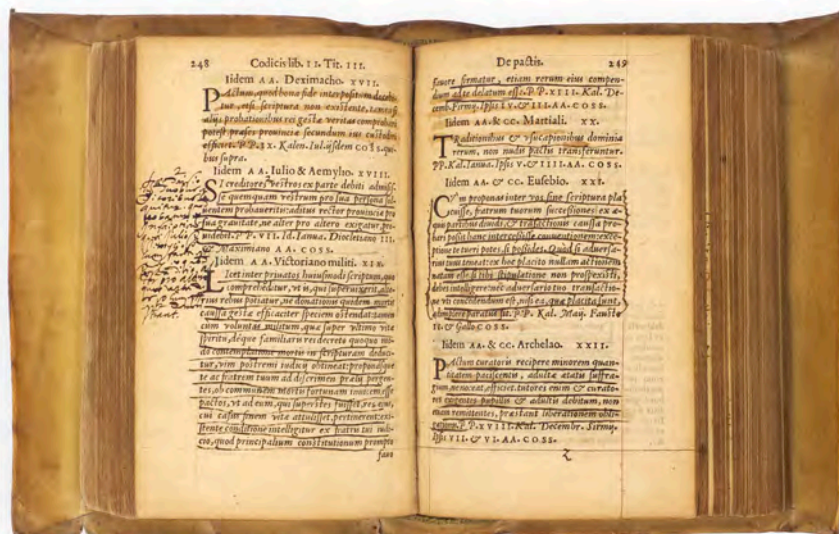 248 Codicis lib. II. Tit. III.
Iidem A A. Deximacho. XVII.
PActum, quod bona fide interpositum docebitur
, etsi scriptura non existente, tamen si
alijs probationibus rei gestæ veritas comprobari
potest, præses prouinciæ secundum ius custodiri
efficiet. P. P. IX. Kalen. Iul. ijsdem COSS. quibus
supra.
Iidem A A. Iulio & Aemylio. XVIII.
SI creditores vestros ex parte debiti admisisse
quemquam vestrum pro sua persona soluentem
probaueritis: aditus rector prouinciæ pro
sua grauitate, ne alter pro altero exigatur, prouidebit.
P. P. VII. Id. Ianua. Diocletiano III.
& Maximiano A A. COSS.
Iidem A A. Victoriano militi. XIX.
LIcet inter priuatos huiusmodi scriptum, quo
comprehenditur, vt is, qui superuixerit, alterius
rebus potiatur, ne donationis quidem mortis
caussa gestæ efficaciter speciem ostendat: tamen
cum voluntas militum, quæ super vltimo vitæ
spiritu, déque familiari rei decreto quoquo modo
contemplatione mortis in scripturam deducitur
, vim postremi iudicij obtineat: proponasque
te ac fratrem tuum ad discrimen prælij pergentes
, ob communem mortis fortunam inuicem esse
pactos, vt ad eum, qui superstes fuisset, res eius,
cui casus finem vitæ attulisset, pertinerent: existente
conditione intellegitur ex fratris tui iudicio
, quod principalium constitutionum prompto
faui
De pactis. 249
fauore firmatur, etiam rerum eius compendium
ad te delatum esse. P. P. XIII. Kal. Decemb.
Firmy. Ipsis IV. & III. AA. COSS.
Iidem AA. & CC. Martiali. XX.
TRaditionibus & vsucapionibus dominia
rerum, non nudis pactis transferuntur.
PP. Kal. Ianua. Ipsis V. & IIII. AA. COSS.
Iidem AA. & CC. Eusebio. XXI.
CVm proponas inter vos sine scriptura placuisse
, fratrum tuorum successiones ex æquis
partibus diuidi, & trãsactionis caussa probari
possit hanc intercessisse conuentionem: exceptione
te tueri potes, si possides. Quod si aduersarius
tuus teneat: ex hoc placito nullam actionem
natam esse, si tibi stipulatione non prospexisti,
debes intellegere: nec aduersario tuo transactione
vti concedendum est, nisi ea, quæ placita sunt,
adimplere paratus sit. P. P. Kal. Maij. Fausto
II. & Gallo COSS.
Iidem AA. & CC. Archelao. XXII.
PActum curatoris recipere minorem quantitatem
paciscentis, adultæ ætatis suffragium
, ne noceat, efficiet. tutores enim & curatores
exigentes pupillis & adultis debitum, non
etiam remittentes, præstant liberationem obligationis
. P. P. XVIII. Kal. Decembr. Sirmij.
Ipsis VII. & VI. AA. COSS.